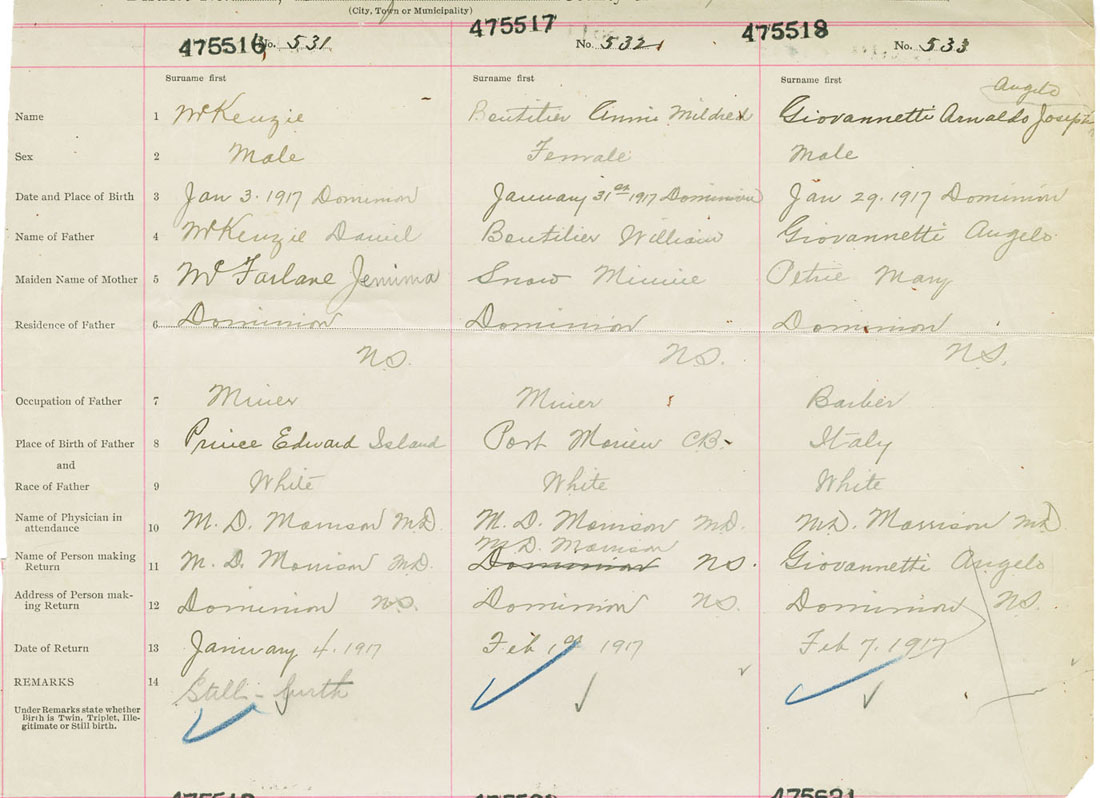 (City, Town or Municipality)
475516 No. 531
475517 No. 532
475518 No. 533
Surname first Surname first Surname first
Angelo
Name 1 McKenzie Boutilier Annie Mildred Giovannetti Arnaldo Joseph
Sex 2 Male Female Male
Date and Place of Birth 3 Jan 3. 1917 Dominion January 31st 1917 Dominion Jan 29. 1917 Dominion
Name of Father 4 McKenzie Daniel Boutilier William Giovannetti Angelo
Maiden Name of Mother 5 McFarlane Jemima Snow Minnie Petrie Mary
Residence of Father 6 Dominion Dominion Dominion
N.S. N.S. N.S.
Occupation of Father 7 Miner Miner Barber
Place of Birth of Father 8 Prince Edward Island Port Morien C.B. Italy
and
Race of Father 9 White White White
Name of Physician in
attendance 10 M. D. Morrison M.D. M. D. Morrison M.D. M.D. Morrison M.D.
M.D. Morrison
Name of Person making
Return 11 M. D. Morrison M.D. Dominion N.S. Giovannetti Angelo
Address of Person mak-
ing Return 12 Dominion N.S. Dominion N.S. Dominion N.S.
Date of Return 13 January 4. 1917 Feb 1st 1917 Feb 7. 1917
REMARKS 14 Still-birth
Under Remarks state whether
Birth is Twin, Triplet, Ille-
gitimate or Still birth.